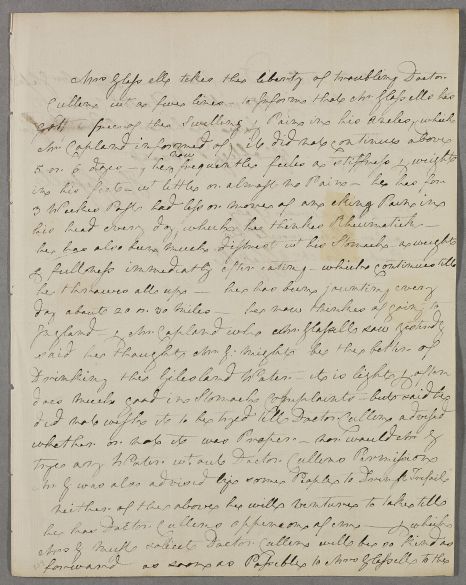 Mrs Glassells takes the liberty of troubling Doctor
Cullen wt a few lines to inform that Mr Glassells has
got free of the Swelling & Pain in his Ancles, which
Mr Capland informed of it did not continue above
5 or 6 days - & he now frequently feeles a stiffness & weight
in his feet - wt little or almost no Pain - he has for
3 Weekes Past had less or more of ane eking Pain in
his head every day, which he thinkes Rheumatick -
he has also been much distrest wt his Stomach a weight
& fullness immediatly after eating - which continues till
he throwes all up - he has been jaunting every
day about 20 or 30 miles - he now thinkes of going to
England & Mr Capland who Mr Glassells saw yesterday
said he thought Mr G: might be the better of
Drinking the Gilesland Water - it is light & often
does much good in Stomach complaints - but said he
did not wish it to be tryed till Doctor Cullen advised
whether or not it was Proper - nor would Mr G
trye any Water wtout Doctor Cullens Permission
Mr G was also advised by some People to Drink Trefoile
neither of the above he will venture to take till
he has Doctor Cullens oppenion of em - & which
Mrs G Must solicit Doctor Cullen will be so kind as
forward as soon as Possible to Mrs Glassells to the